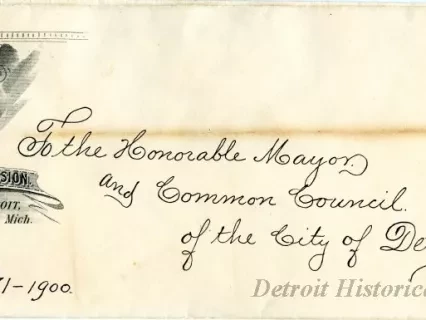 To the Honorable Mayor
and Common Council.
of the City of De
SION,
OIT,
Mich.
1-1900.
Detroit Historica